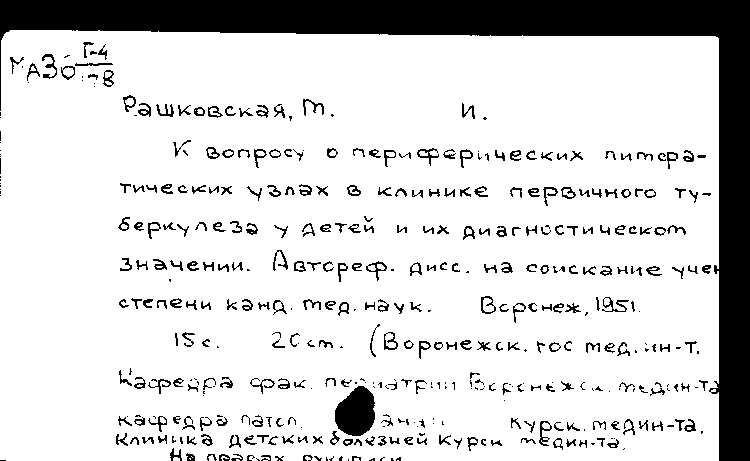 МАЗО Г-4
78
Рашковская, М. И.
К вопросу о периферических лимфа-
тических узлах в клинике первичного ту-
беркулеза у детей и их диагностическом
значении. Автореф. дисс. на соискание учен
степени канд. мед. наук. Воронеж, 1951.
15 с. 20 см. (Воронежск. гос мед. ин-т.
Кафедра фак. педиатрии Воронежск. медин-та
кафедра патол. Курск. медин-та.
Клиника детских болезней Курск медин-та.
На правах рукописи